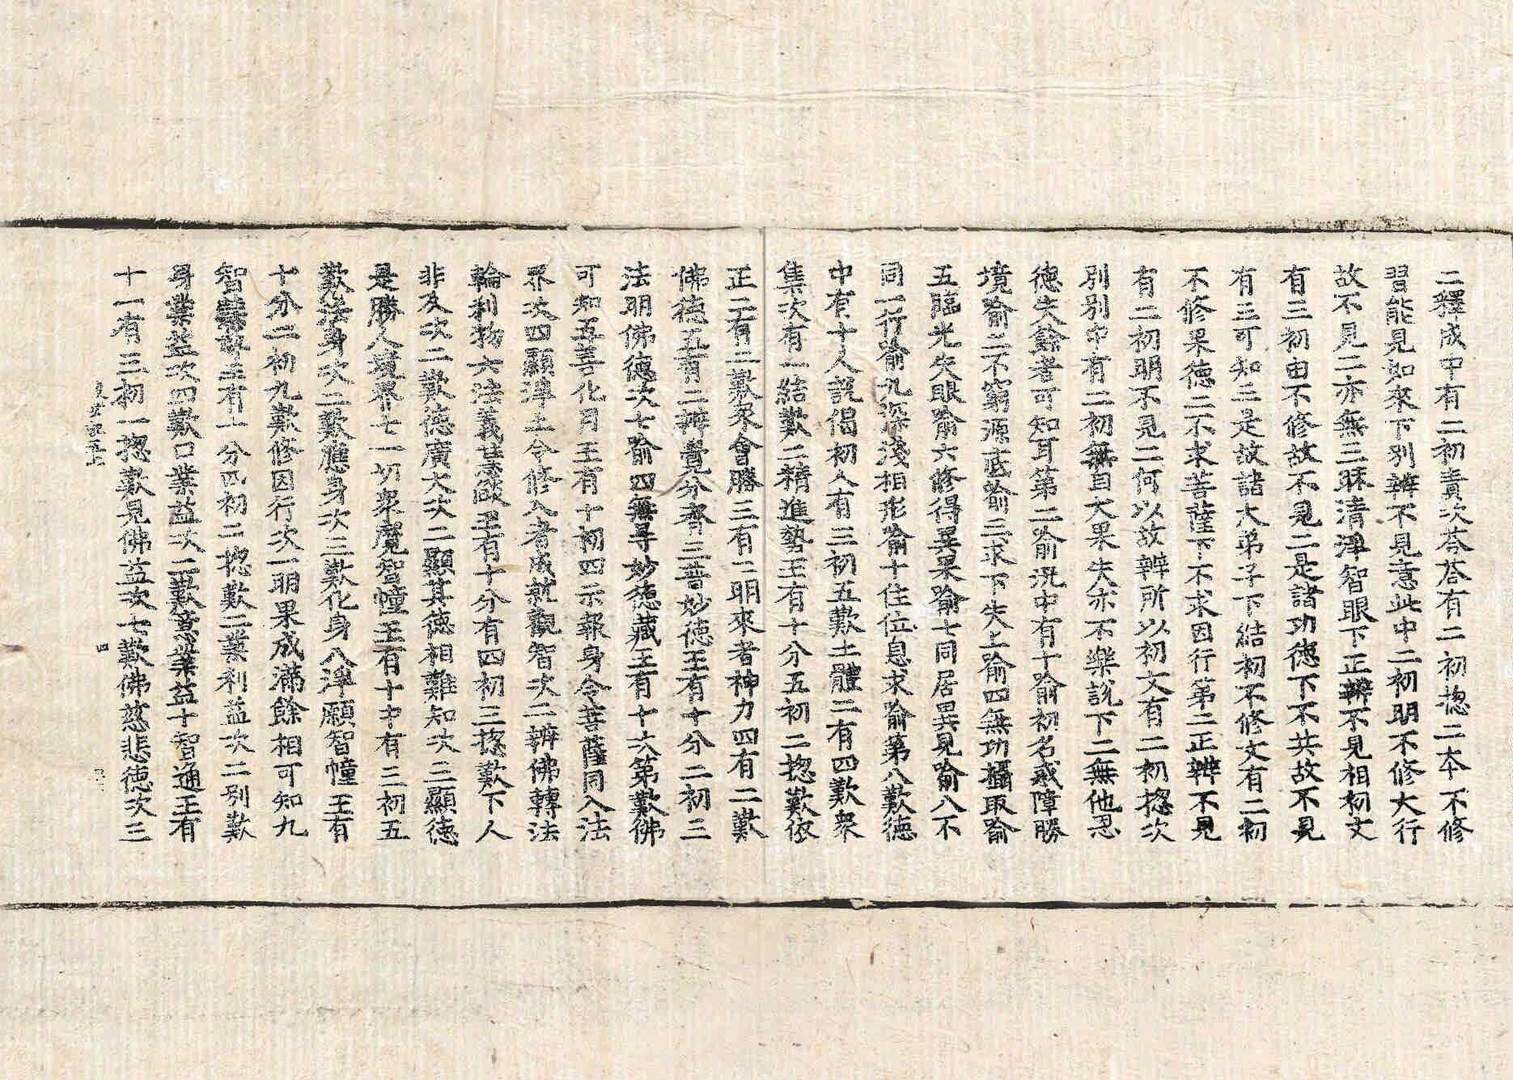 二釋成中有二初責次荅荅有二初揔二本不修
習能見如來下別辨不見意此中二初明不修大行
故不見二亦無三昧清淨智眼下正辨不見相初文
有三初由不修故不見二是諸功德下不共故不見
有三可知三是故諸大弟子下結初不修文有二初
不修果德二不求菩薩下不求因行第二正辨不見
有二初明不見二何以故辨所以初文有二初揔次
別別中有二初無自大果失亦不樂說下二無他忍
德失餘者可知耳第二喻況中有十喻初名或障勝
境喻二不窮源底喻三求下失上喻四無功攝取喻
五臨光失眼喻六修得異果喻七同居異見喻八不
同一行喻九深淺相形喻十住位息求喻第八歎德
中有十人說偈初人有三初五歎土體二有四歎衆
集次有一結歎二精進勢王有十分五初二揔歎依
正二有二歎衆會勝三有一明來者神力四有二歎
佛德五有二辨覺分齊三普妙德王有十分二初三
法明佛德次七喻四無㝵妙德藏王有十六第歎佛
可知五善化月王有十初四示報身令菩薩同入法
界次四顯淨土令修入者成就觀智次二辨佛轉法
輪利物六法義慧𦦨王有十分有四初三揔歎下人
非及次二歎德廣大次二顯其德相難知次三顯德
是勝人境界七一切衆魔智幢王有十中有三初五
歎法身次二歎應身次三歎化身八淨願智幢王有
十分二初九歎修因行次一明果成滿餘相可知九
智王有十分四初二揔歎二業利益次二別歎
身業益次四歎口業益次二歎意業益十智通王有
十一有三初一揔歎見佛益次七歎佛慈悲德次三
四